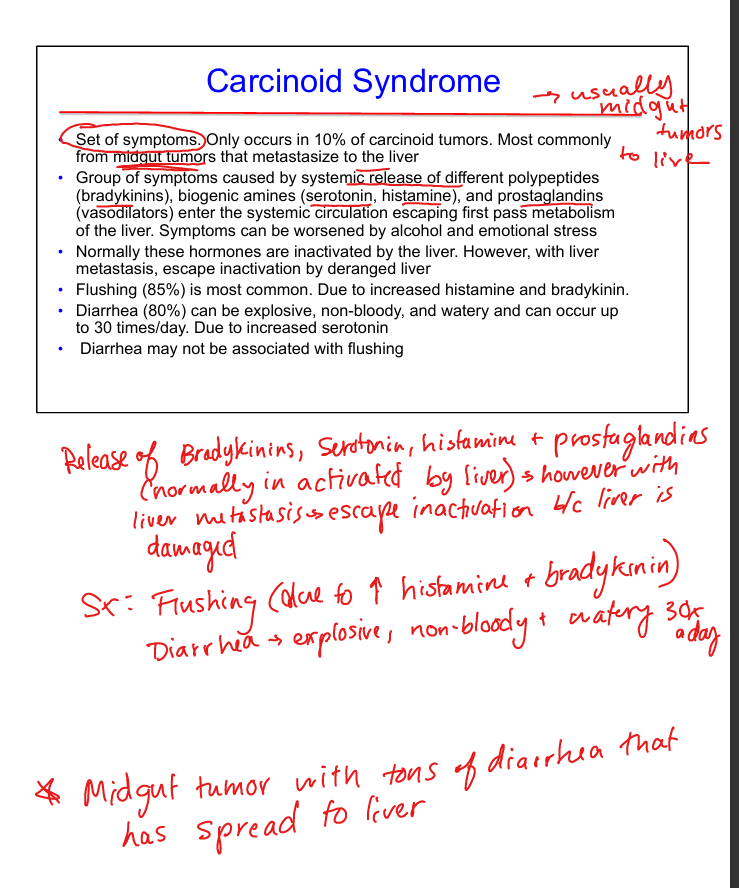 Carcinoid Syndrome
→ usually
midgut
tumors
to live
• Set of symptoms. Only occurs in 10% of carcinoid tumors. Most commonly
from midgut tumors that metastasize to the liver
• Group of symptoms caused by systemic release of different polypeptides
(bradykinins), biogenic amines (serotonin, histamine), and prostaglandins
(vasodilators) enter the systemic circulation escaping first pass metabolism
of the liver. Symptoms can be worsened by alcohol and emotional stress
• Normally these hormones are inactivated by the liver. However, with liver
metastasis, escape inactivation by deranged liver
• Flushing (85%) is most common. Due to increased histamine and bradykinin.
• Diarrhea (80%) can be explosive, non-bloody, and watery and can occur up
to 30 times/day. Due to increased serotonin
• Diarrhea may not be associated with flushing
Release of Bradykinins, Serotonin, histamine + prostaglandins
(normally in activated by liver) → however with
liver metastasis → escape inactivation b/c liver is
damaged
Sx: Flushing (due to ↑ histamine + bradykinin)
Diarrhea → explosive, non-bloody + watery 30x
a day
* Midgut tumor with tons of diarrhea that
has spread to liver